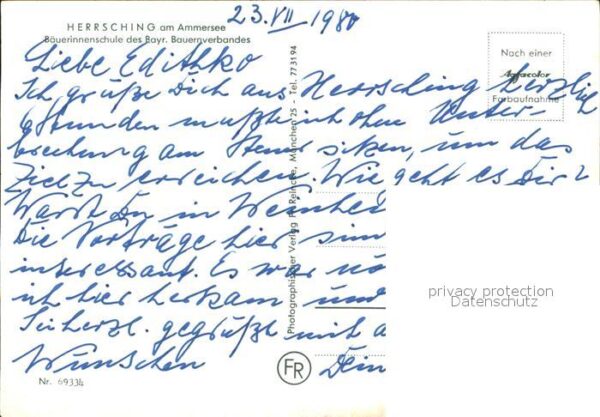 23. VII 1980
HERRSCHING am Ammersee
Bäuerinnenschule des Bayr. Bauernverbandes
Liebe Edithko
Ich grüße Dich aus Herrsching herzlich
6 Stunden mußte ich ohne Unter-
brechung am Steuer sitzen, um das
Ziel zu erreichen. Wie geht es Dir?
Warst Du in Weinhei
Die Vorträge hier sin
interessant. Es war nö
ich hier herkam und
Sei herzl. gegrüßt mit a
Wünschen Dein
Nach einer
Agfacolor
Farbaufnahme
Photographischer Verlag Reinicke, München 25 - Tel. 773194
privacy protection
Datenschutz
FR
Nr. 6933k